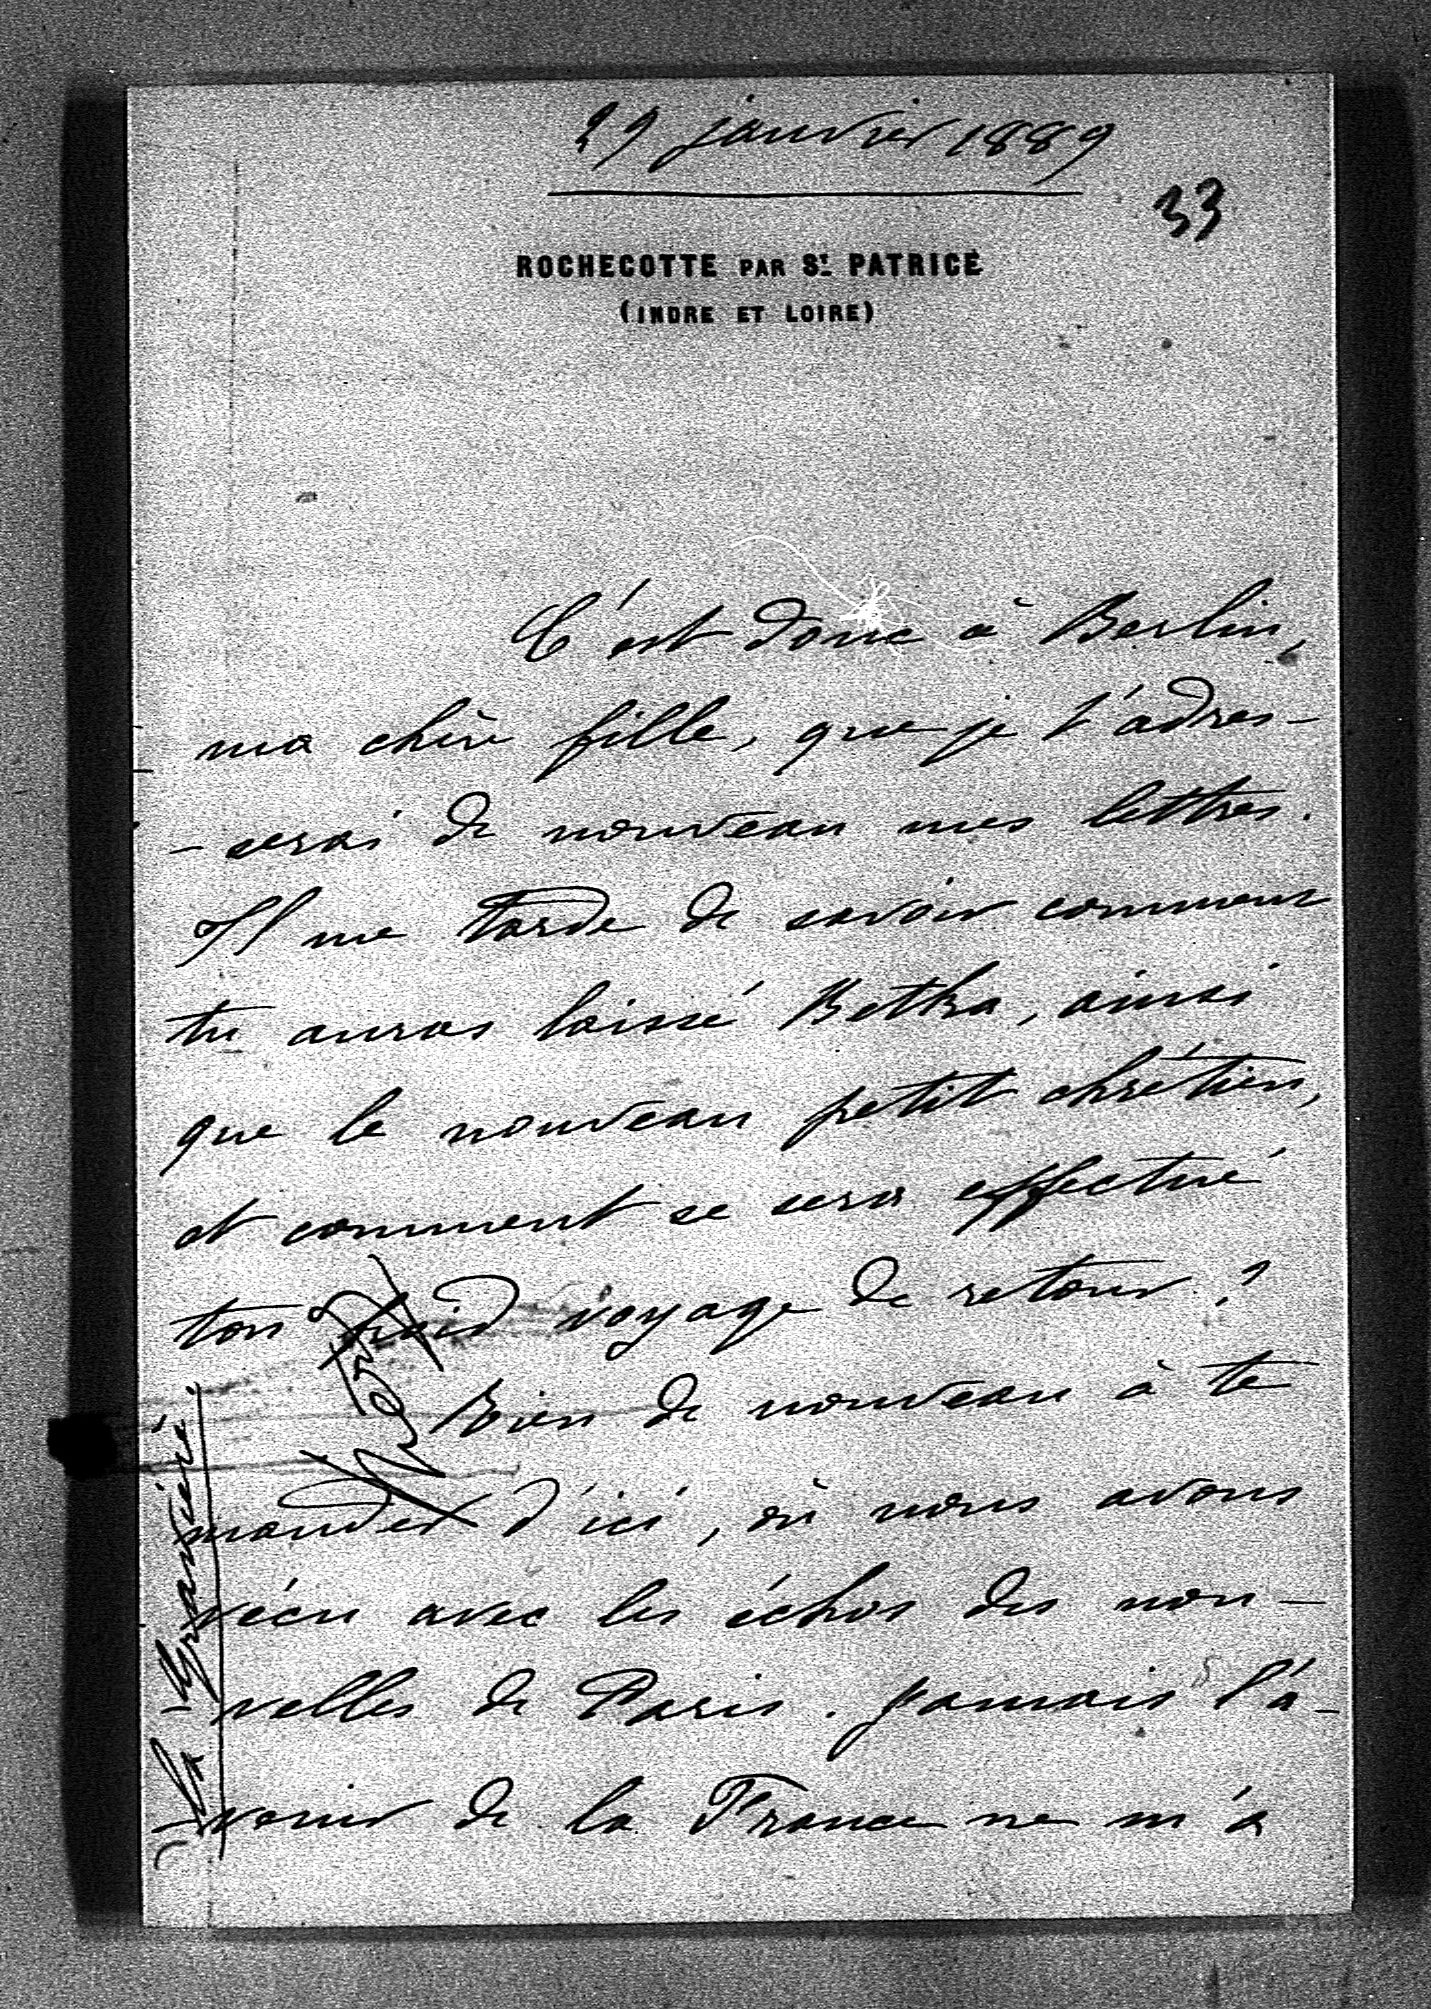 29 janvier 1889
33
ROCHECOTTE PAR ST. PATRICE
(INDRE ET LOIRE)
C'est donc à Berlin,
ma chère fille, que je t'adres-
-serai de nouveau mes lettres.
Il me tarde de savoir comment
tu auras laissé Betka, ainsi
que le nouveau petit chrétien,
et comment se sera effectué
ton froid voyage de retour ?
Rien de nouveau à te
mander d'ici, où nous avons
vécu avec les échos des nou-
velles de Paris. Jamais l'a-
-venir de la France ne m'a